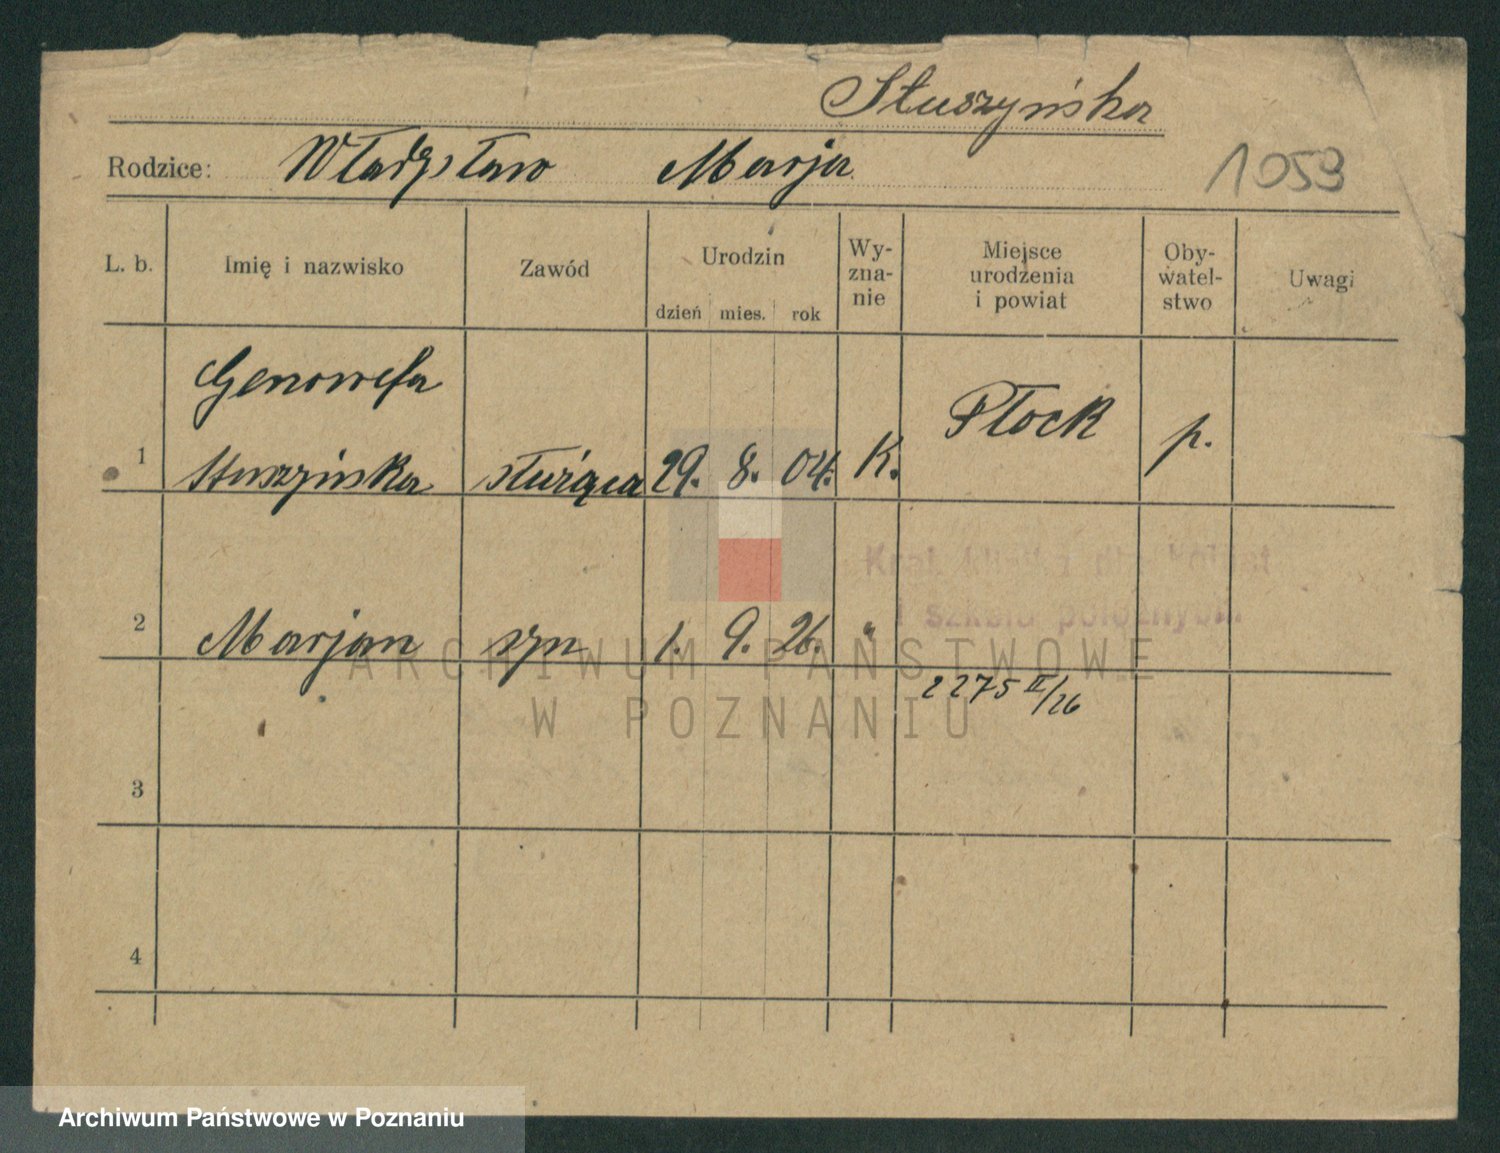 Słuszyńska
Rodzice: Władysław Marja
1053
L. b. Imię i nazwisko Zawód Urodzin dzień mies. rok Wy-zna-nie Miejsce urodzenia i powiat Oby-watel-stwo Uwagi
Genowefa Płock p.
1 Słuszyńska służąca 29. 8. 04. K.
i szkoła położnych.
2 Marjan syn 1. 9. 26. "
2275 II/26
3
4
ARCHIWUM PAŃSTWOWE
W POZNANIU
Archiwum Państwowe w Poznaniu